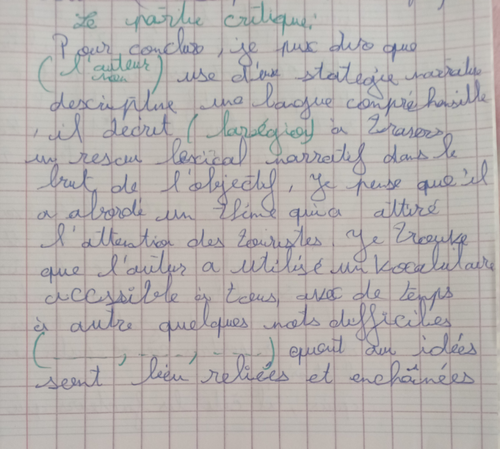 Le partie critique:
Pour conclus, je pux dire que
(l'auteur nom) use d'une stratégie narrative
descriptive une langue compréhensille
, il décrit (la région) à travers
un reseau lexical narratif dans le
brut de l'objectif, je pense que'il
a abordé un thème qui a attiré
l'attention des touristes. je trouve
que l'auteur a utilisé un vocabulaire
accssible à tous, avec de temps
à autre quelques mots difficiles
(......,......,......) quant au idées
sont bien reliées et enchaînées